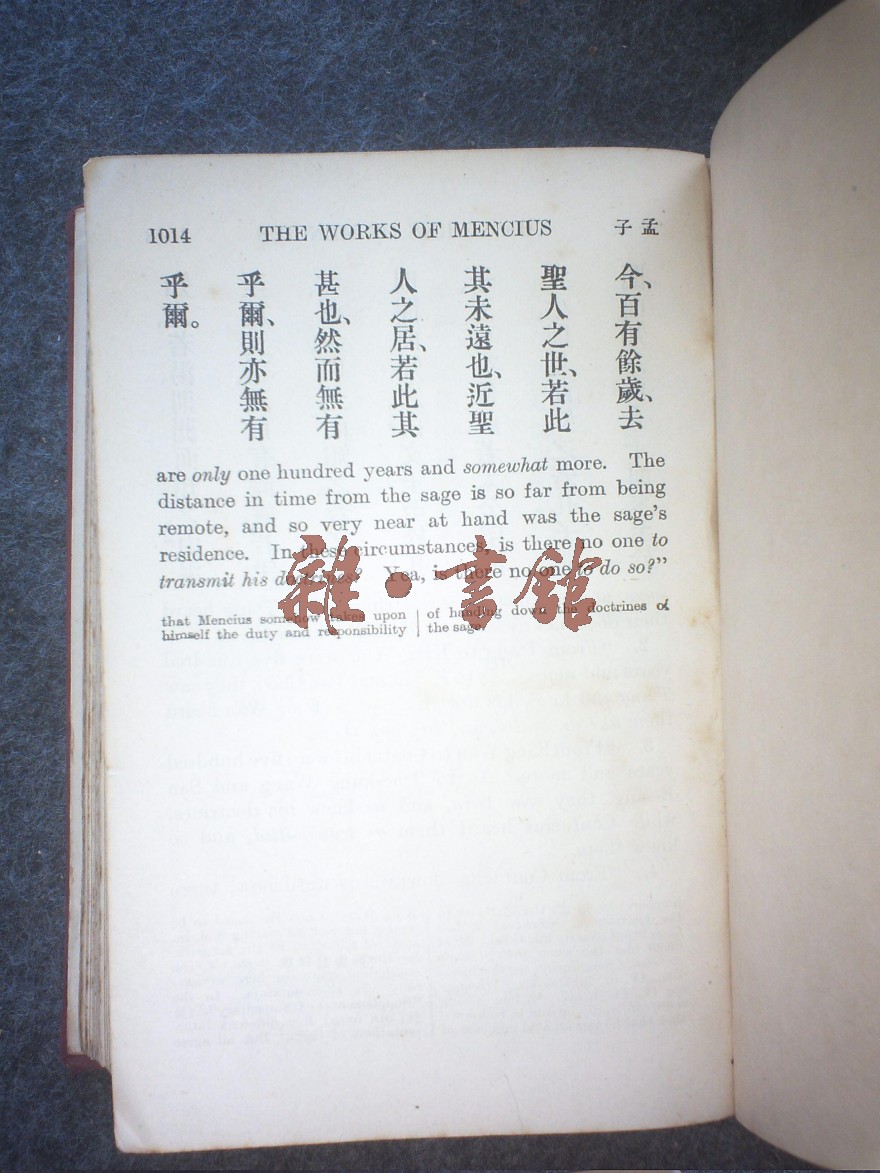 1014 THE WORKS OF MENCIUS 孟子
今、百有餘歲、去
聖人之世、若此
其未遠也、近聖
人之居、若此其
甚也、然而無有
乎爾、則亦無有
乎爾。
are only one hundred years and somewhat more. The
distance in time from the sage is so far from being
remote, and so very near at hand was the sage's
residence. In these circumstances, is there no one to
transmit his doctrines? Yea, is there no one to do so?"
that Mencius somehow takes upon
himself the duty and responsibility
of handing down the doctrines of
the sage.
雜·書館